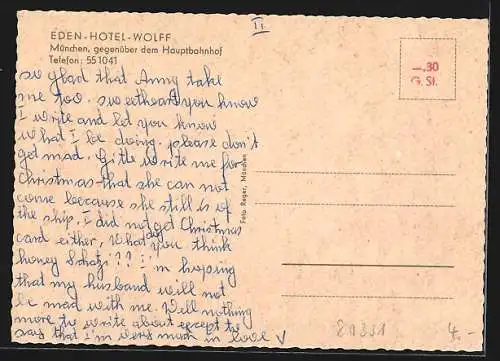 EDEN - HOTEL - WOLFF
München, gegenüber dem Hauptbahnhof
Telefon: 551041
II.
—.30
G. St.
so glad that Anny take
me too. sweetheart you know
I write and let you know
what I be doing. please don't
get mad. Gitte write me for
Christmas that she can not
come because she still is of
the ship. I did not get Christmas
card either, What do you think
honey Schatzi??? i'm hoping
that my husband will not
be mad with me. Well nothing
more to write about except to
say that I'm very much in love
Foto Reger, München
4.-